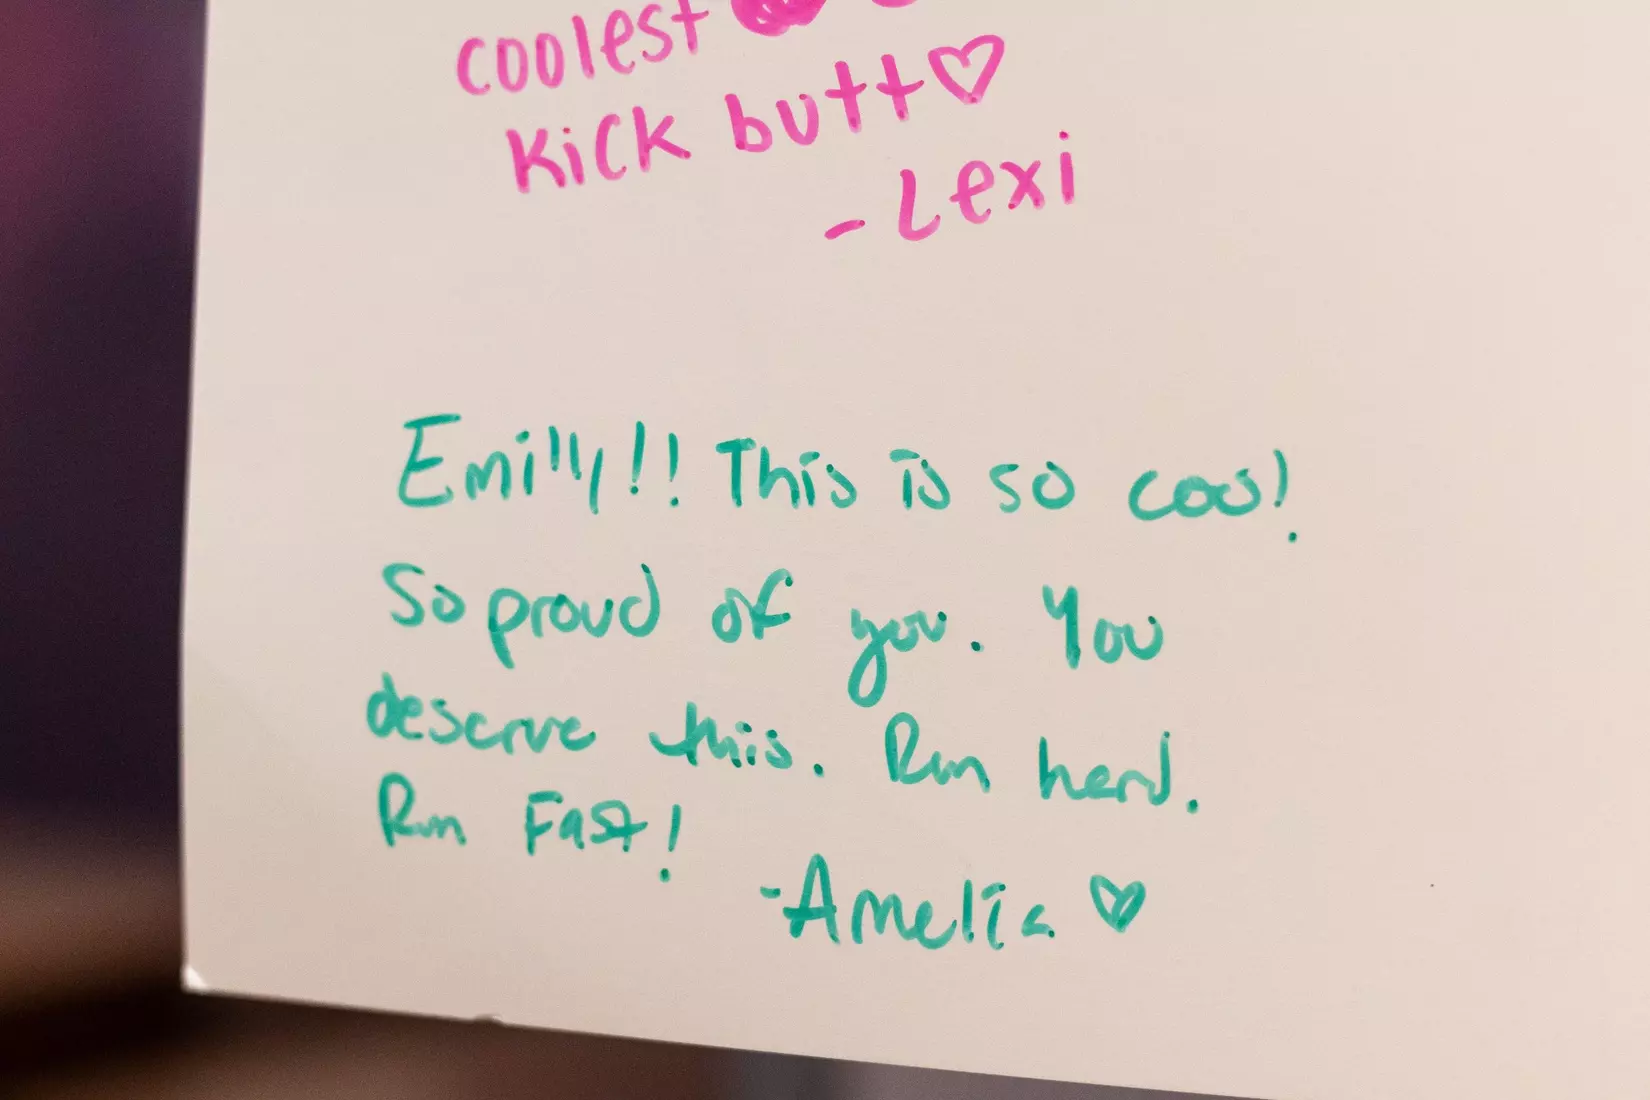 coolest
Kick butt♡
-Lexi
Emilly!! This is so cool!
So proud of you. You
deserve this. Run hard.
Run Fast!
-Amelia ♡